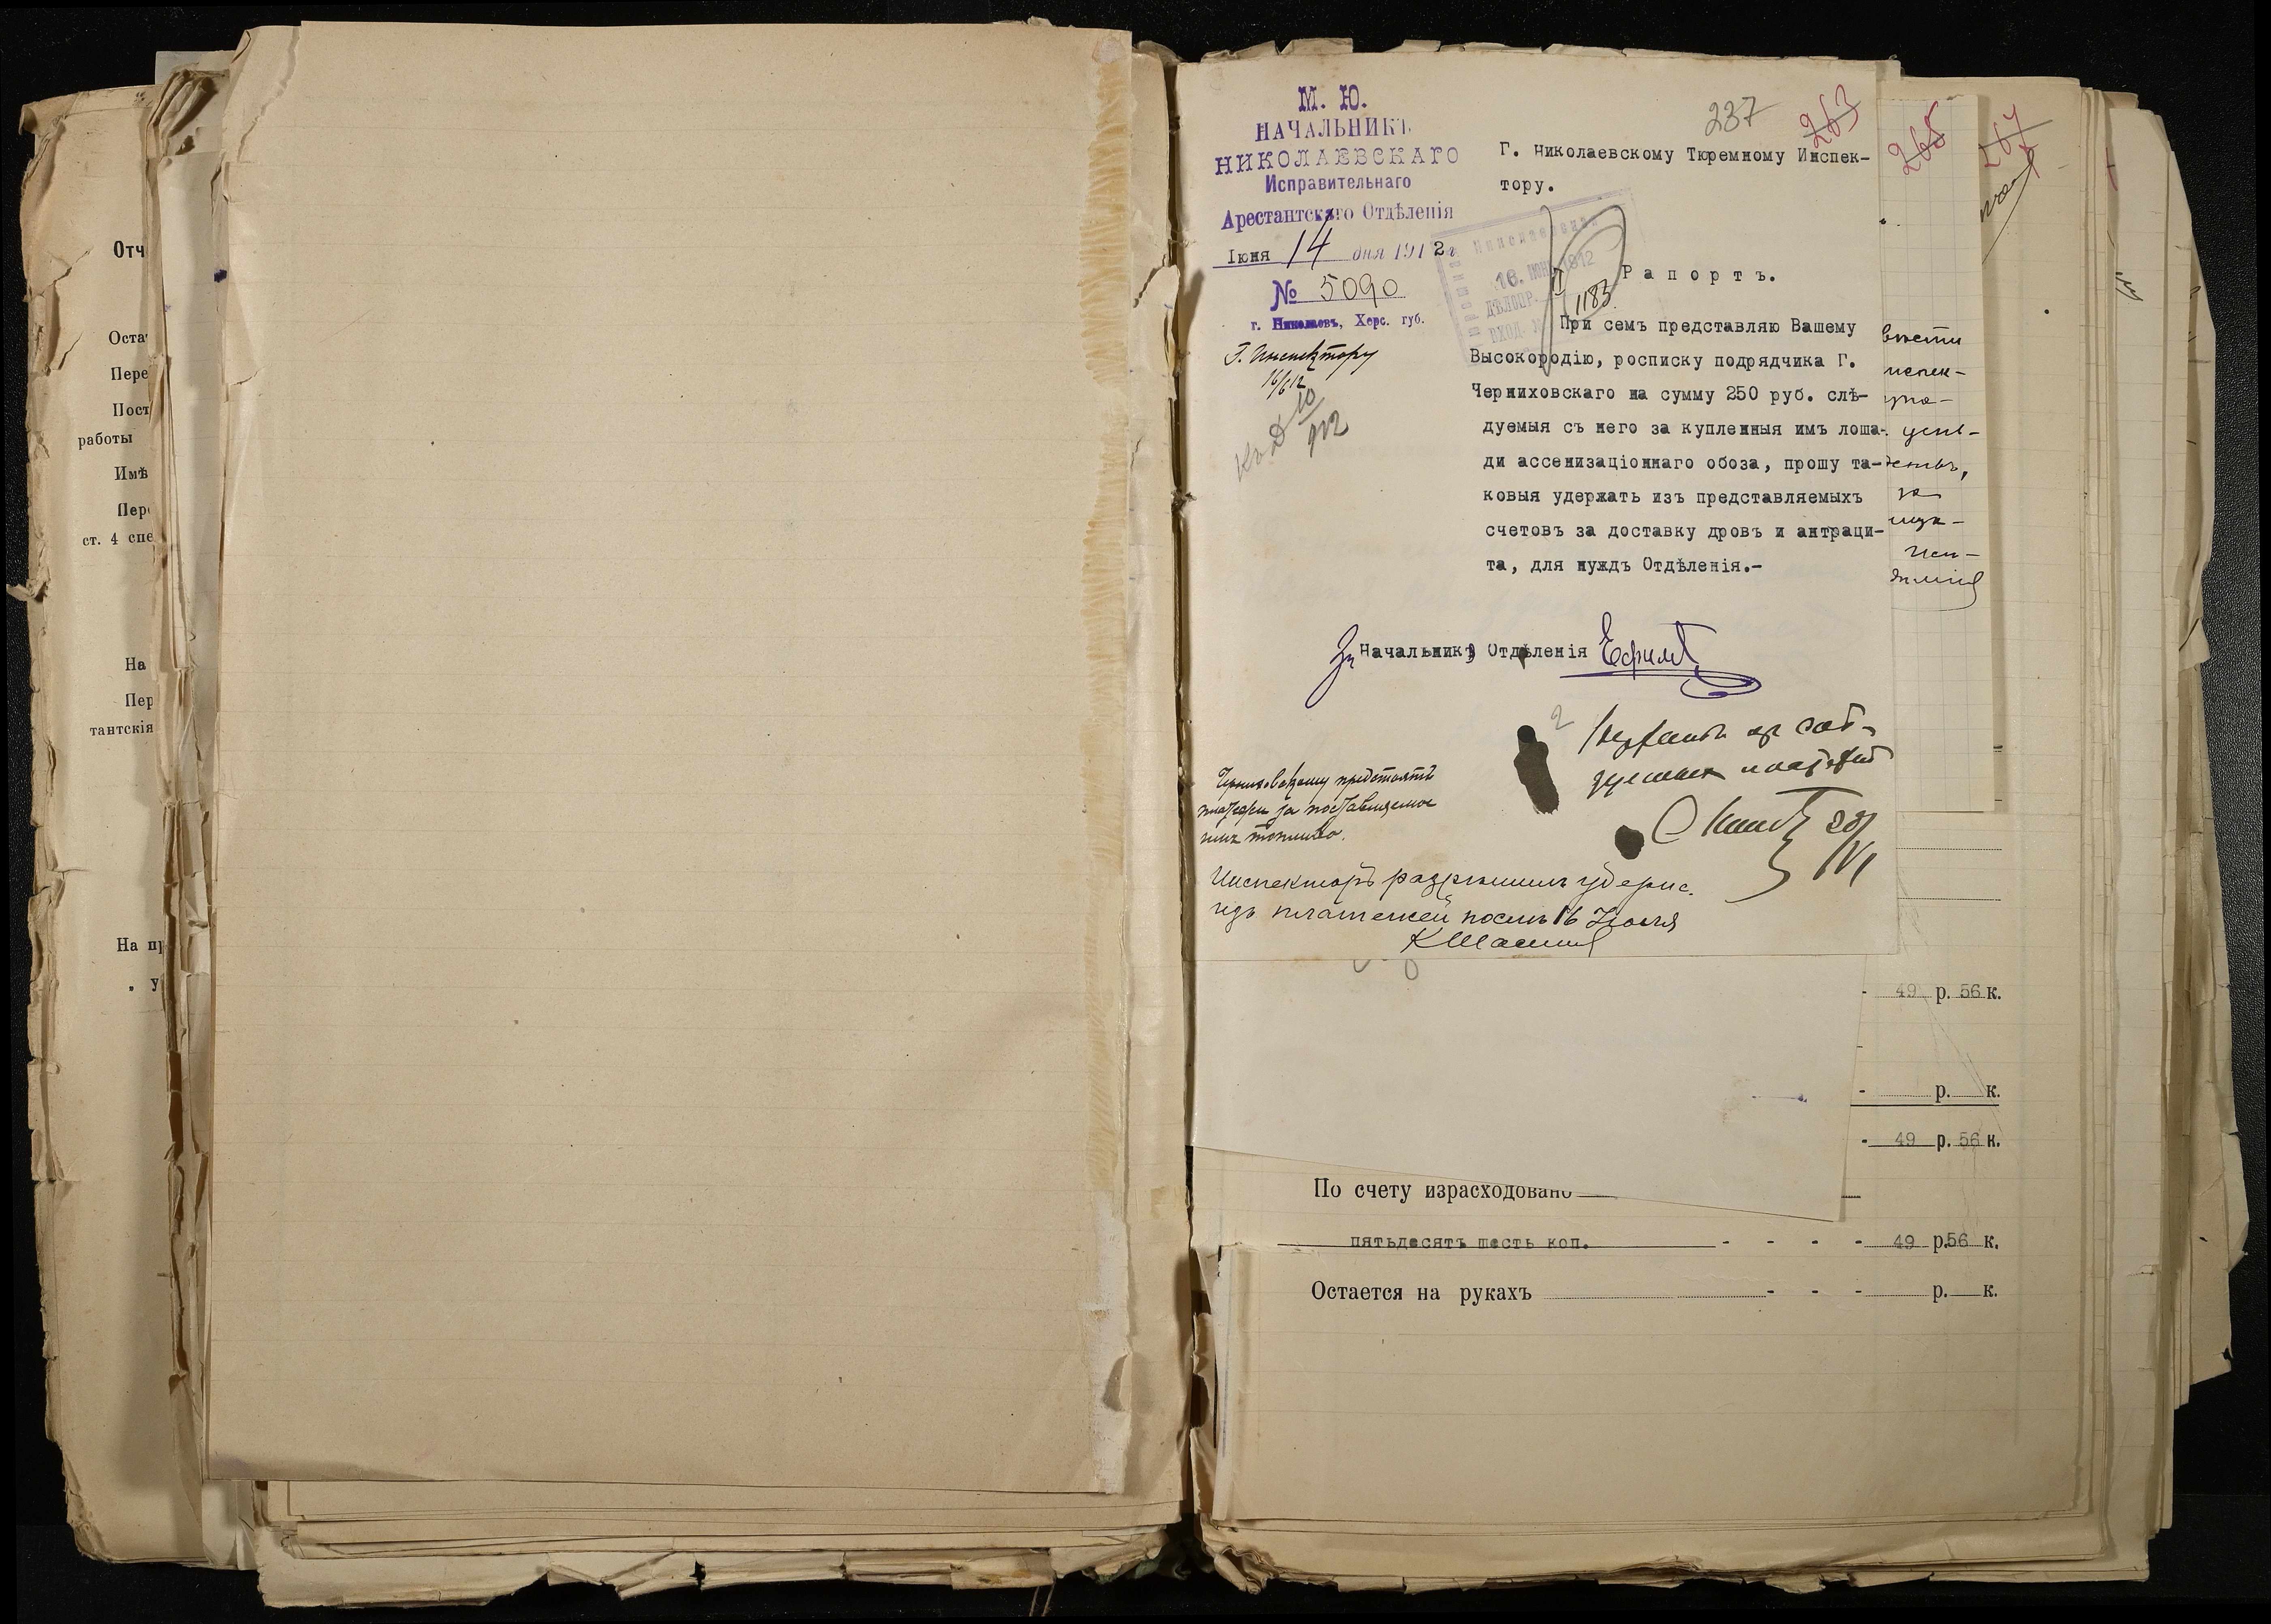 Отч
Оста
Пере
Пост
работы
Имѣ
Пер
ст. 4 спе
На
Пер
тантскія
На пр
М. Ю.
НАЧАЛЬНИКЪ
НИКОЛАЕВСКАГО
Исправительнаго
Арестантскаго Отдѣленія
Іюня 14 дня 1912 г
№ 5090
г. Николаевъ, Херс. губ.
Г. Инспектору
16/6 12
237
263
265
267
Г. Николаевскому Тюремному Инспек-
тору.
16. ІЮН 1912
1183
Рапортъ.
При семъ представляю Вашему
Высокородію, росписку подрядчика Г.
Черниховскаго на сумму 250 руб. слѣ-
дуемыя съ него за купленныя имъ лоша-
ди ассенизаціоннаго обоза, прошу та-
ковыя удержать изъ представляемыхъ
счетовъ за доставку дровъ и антраци-
та, для нуждъ Отдѣленія.-
За Начальника Отдѣленія
2
Черниховскому предстоятъ
платежи за поставляемое
имъ топливо.
20/VI
Инспекторъ разрѣшилъ удерж.
изъ платежей послѣ 16 Іюля
- 49 р. 56 к.
- р. к.
- 49 р. 56 к.
По счету израсходовано
пятьдесятъ шесть коп. - - - - 49 р. 56 к.
Остается на рукахъ - - - р. к.